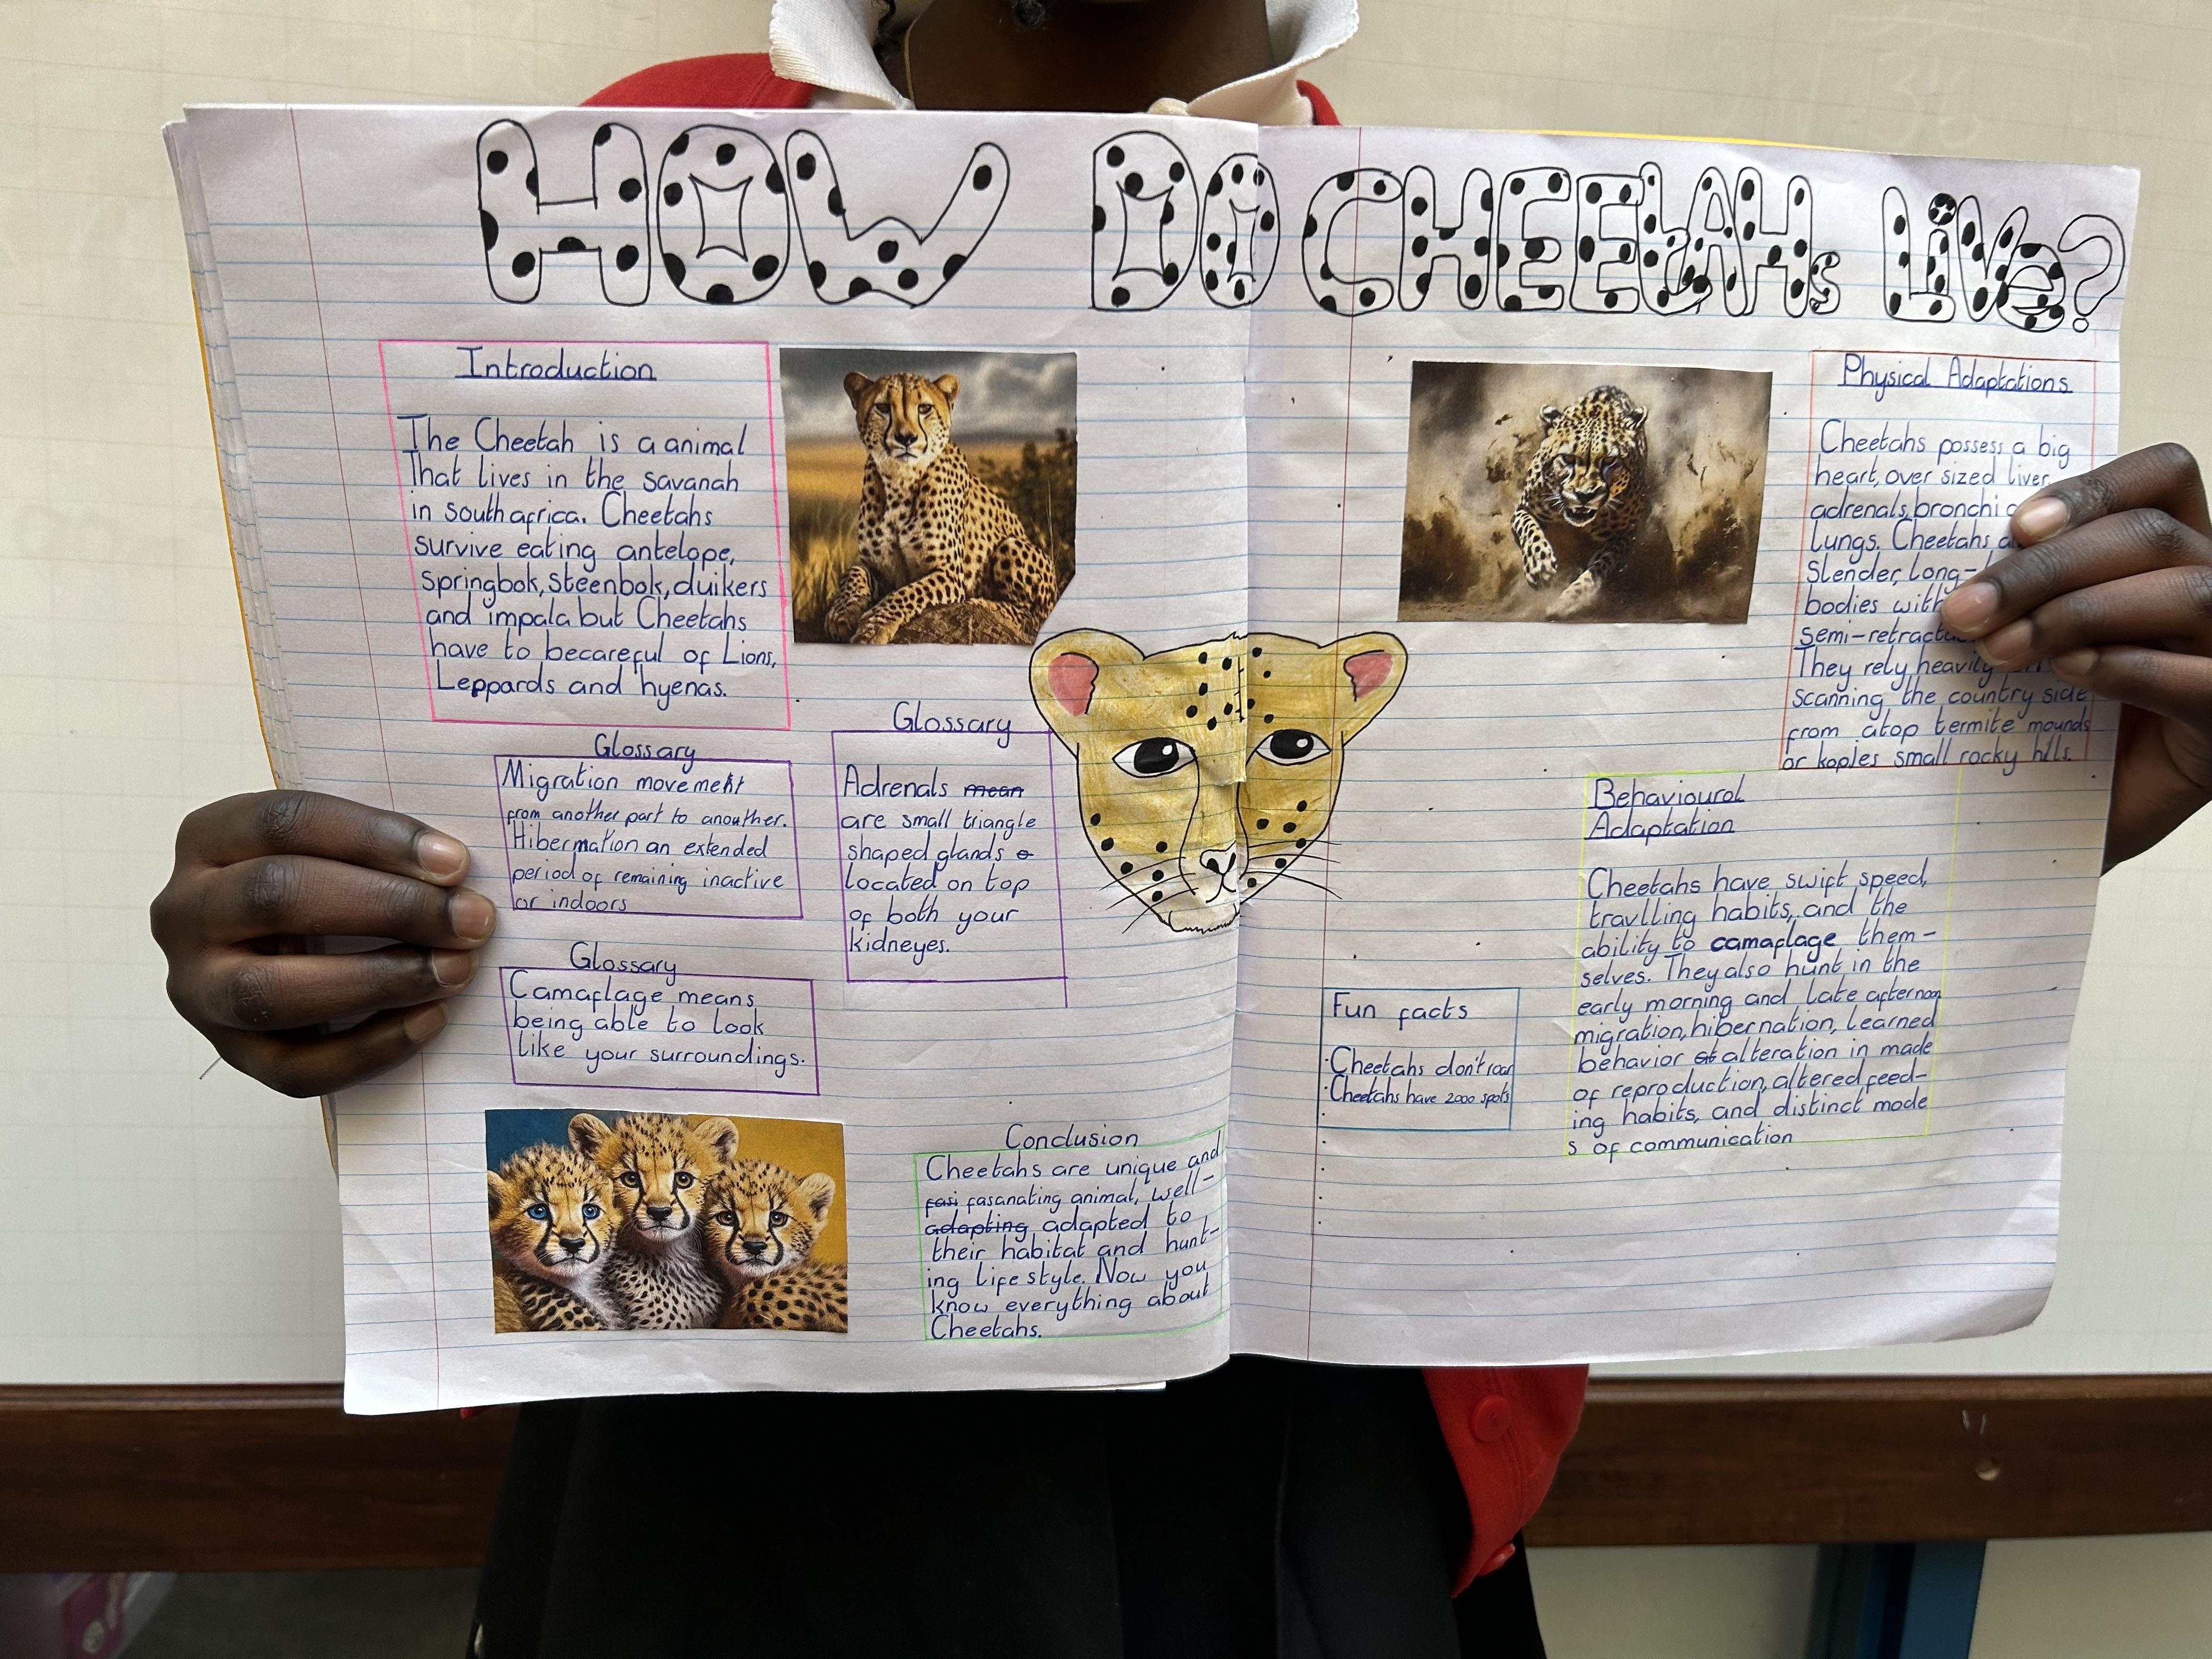 HOW DO CHEETAHs LiVe?
Introduction
The Cheetah is a animal
That lives in the savanah
in south africa. Cheetahs
survive eating antelope,
springbok, steenbok, duikers
and impala but Cheetahs
have to becareful of Lions,
Leppards and hyenas.
Glossary
Migration movement
from another part to anouther.
Hibernation an extended
period of remaining inactive
or indoors
Glossary
Camaflage means
being able to look
like your surroundings.
Glossary
Adrenals mean
are small triangle
shaped glands o
located on top
of both your
kidneyes.
Conclusion
Cheetahs are unique and
fasi fasanating animal, well-
adapting adapted to
their habitat and hunt-
ing life style. Now you
know everything about
Cheetahs.
Physical Adaptations
Cheetahs possess a big
heart, over sized liver
adrenals, bronchi
lungs. Cheetahs
Slender, long-
bodies with
semi-retract
They rely heavily
scanning the country side
from atop termite mounds
or kopies small rocky hills.
Behavioural
Adaptation
Cheetahs have swift speed,
travlling habits, and the
ability to camaflage them-
selves. They also hunt in the
early morning and late afternoon
migration, hibernation, learned
behavior at alteration in made
of reproduction, altered feed-
ing habits, and distinct mode
s of communication
Fun facts
·Cheetahs don't roar
·Cheetahs have 2000 spots